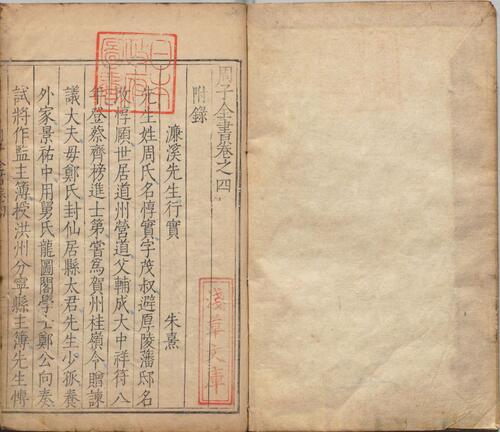 周子全書卷之四
附錄
濂溪先生行實 朱熹
先生姓周氏名惇實字茂叔避厚陵藩邸名
改惇頤世居道州營道父輔成大中祥符八
年登蔡齊榜進士第嘗爲賀州桂嶺令贈諫
議大夫毋鄭氏封仙居縣太君先生少孤養
外家景祐中用舅氏龍圖閣學士鄭公向奏
試將作監主簿授洪州分寧縣主簿先生博
日本
政府
圖書
淺草文庫